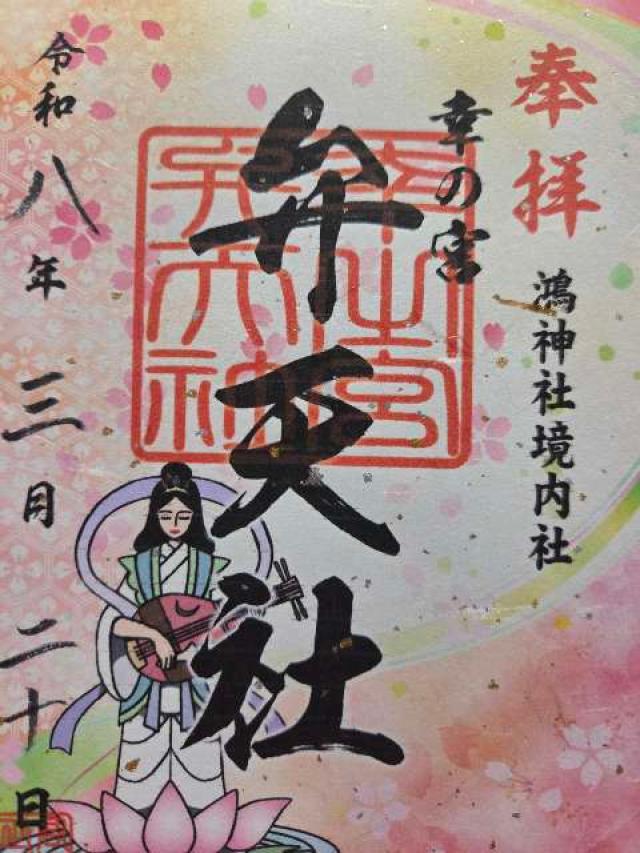 奉拝
鴻神社境内社
幸の宮
弁天社
令和八年三月二十日